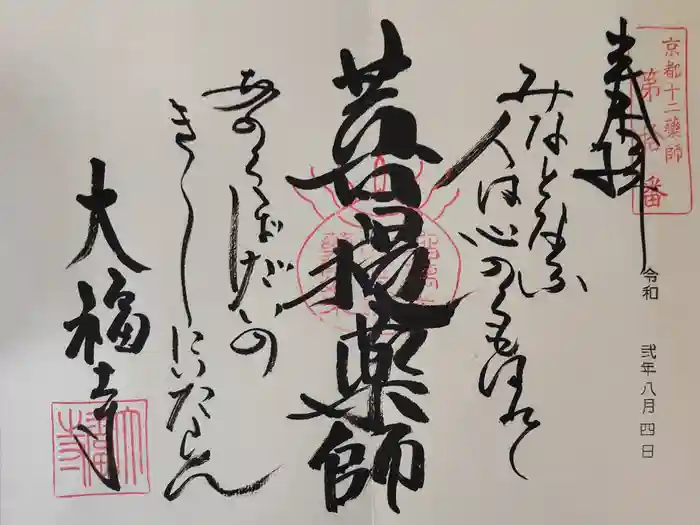 京都十二藥師
第拾番
奉拝
令和 弐年八月四日
みなとなふ
人は心のくもはれて
菩提薬師
あのくぼだいの
きしにいたらん
大福寺
大福寺